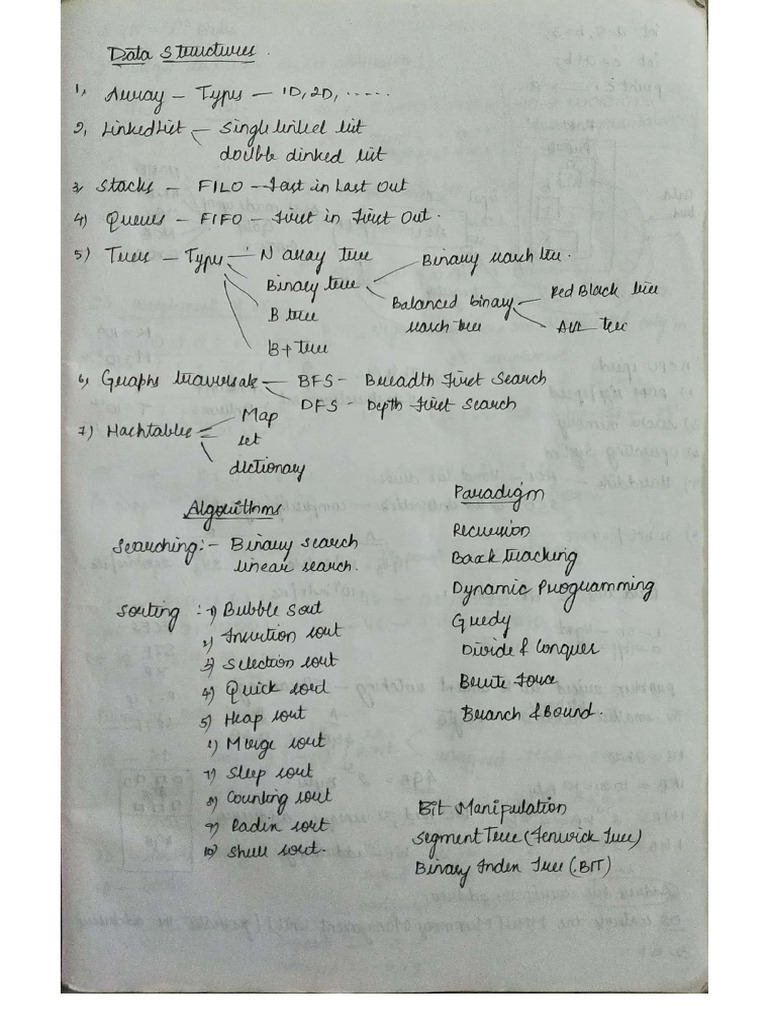 Data Structures.
1, Array - Types - 1D, 2D, .....
2, LinkedList - Single linked list
double linked list
3, Stacks - FILO - Fast in Last Out
4) Queues - FIFO - First in First Out.
5) Trees - Types - N array tree
Binary tree - Binary search tree.
Balanced binary search tree - Red Black tree
AVL tree
B tree
B+ tree
6) Graphs traversals - BFS - Breadth First Search
DFS - Depth First Search
7) Hashtables - Map
set
dictionary
Algorithms
Searching :- Binary search
linear search.
Sorting :- 1) Bubble Sort
2) Insertion sort
3) Selection sort
4) Quick sort
5) Heap sort
6) Merge sort
7) Sleep sort
8) Counting sort
9) Radix sort
10) Shell sort.
Paradigm
Recursion
Back tracking
Dynamic Programming
Greedy
Divide & Conquer
Brute Force
Branch & Bound.
Bit Manipulation
Segment Tree (Fenwick Tree)
Binary Index Tree (.BIT)